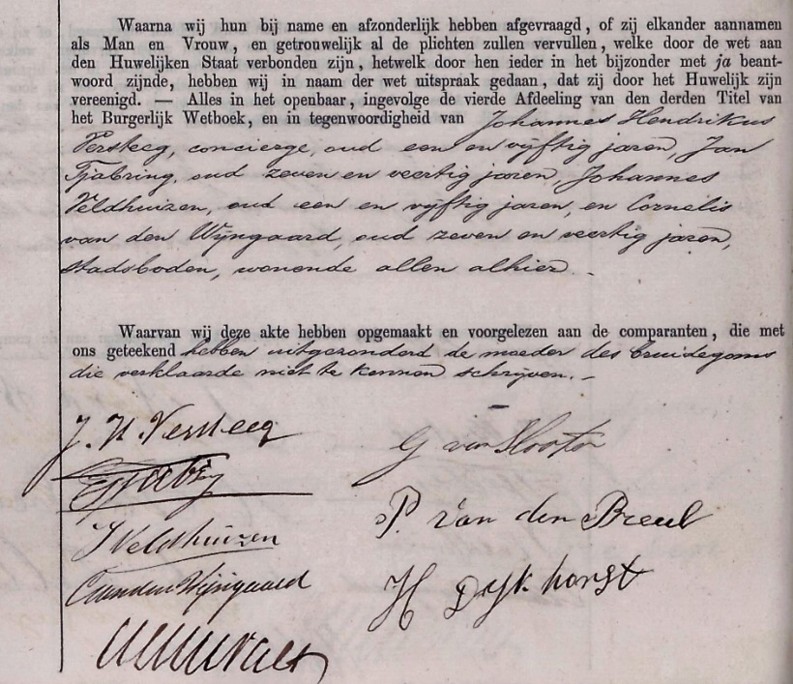 Waarna wij hun bij name en afzonderlijk hebben afgevraagd, of zij elkander aannamen
als Man en Vrouw, en getrouwelijk al de plichten zullen vervullen, welke door de wet aan
den Huwelijken Staat verbonden zijn, hetwelk door hen ieder in het bijzonder met ja beant-
woord zijnde, hebben wij in naam der wet uitspraak gedaan, dat zij door het Huwelijk zijn
vereenigd. — Alles in het openbaar, ingevolge de vierde Afdeeling van den derden Titel van
het Burgerlijk Wetboek, en in tegenwoordigheid van Johannes Hendrikus
Versteeg, concierge, oud een en vijftig jaren, Jan
Tjabring, oud zeven en veertig jaren, Johannes
Veldhuizen, oud een en vijftig jaren, en Cornelis
van den Wijngaard, oud zeven en veertig jaren,
stadsboden, wonende allen alhier. -
Waarvan wij deze akte hebben opgemaakt en voorgelezen aan de comparanten, die met
ons geteekend hebben uitgezonderd de moeder des bruidegoms
die verklaarde niet te kennen schrijven. -
J. H. Versteeg
G van Slooten
P. van den Breul
JVeldhuizen
CvandenWijngaard
H Dijkhorst